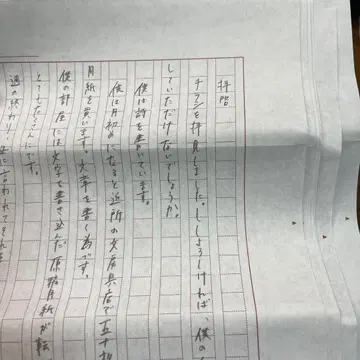 拝啓
チラシを拝見しました。よろしければ、僕の
していただけないでしょうか。
僕は詩を書いています。
僕は月初めになると近所の文房具店で五十枚
用紙を買います。文章を書く為です。
僕の部屋には文字で書き込んだ原稿用紙が転
とてもたくさんにです。
週の終わり